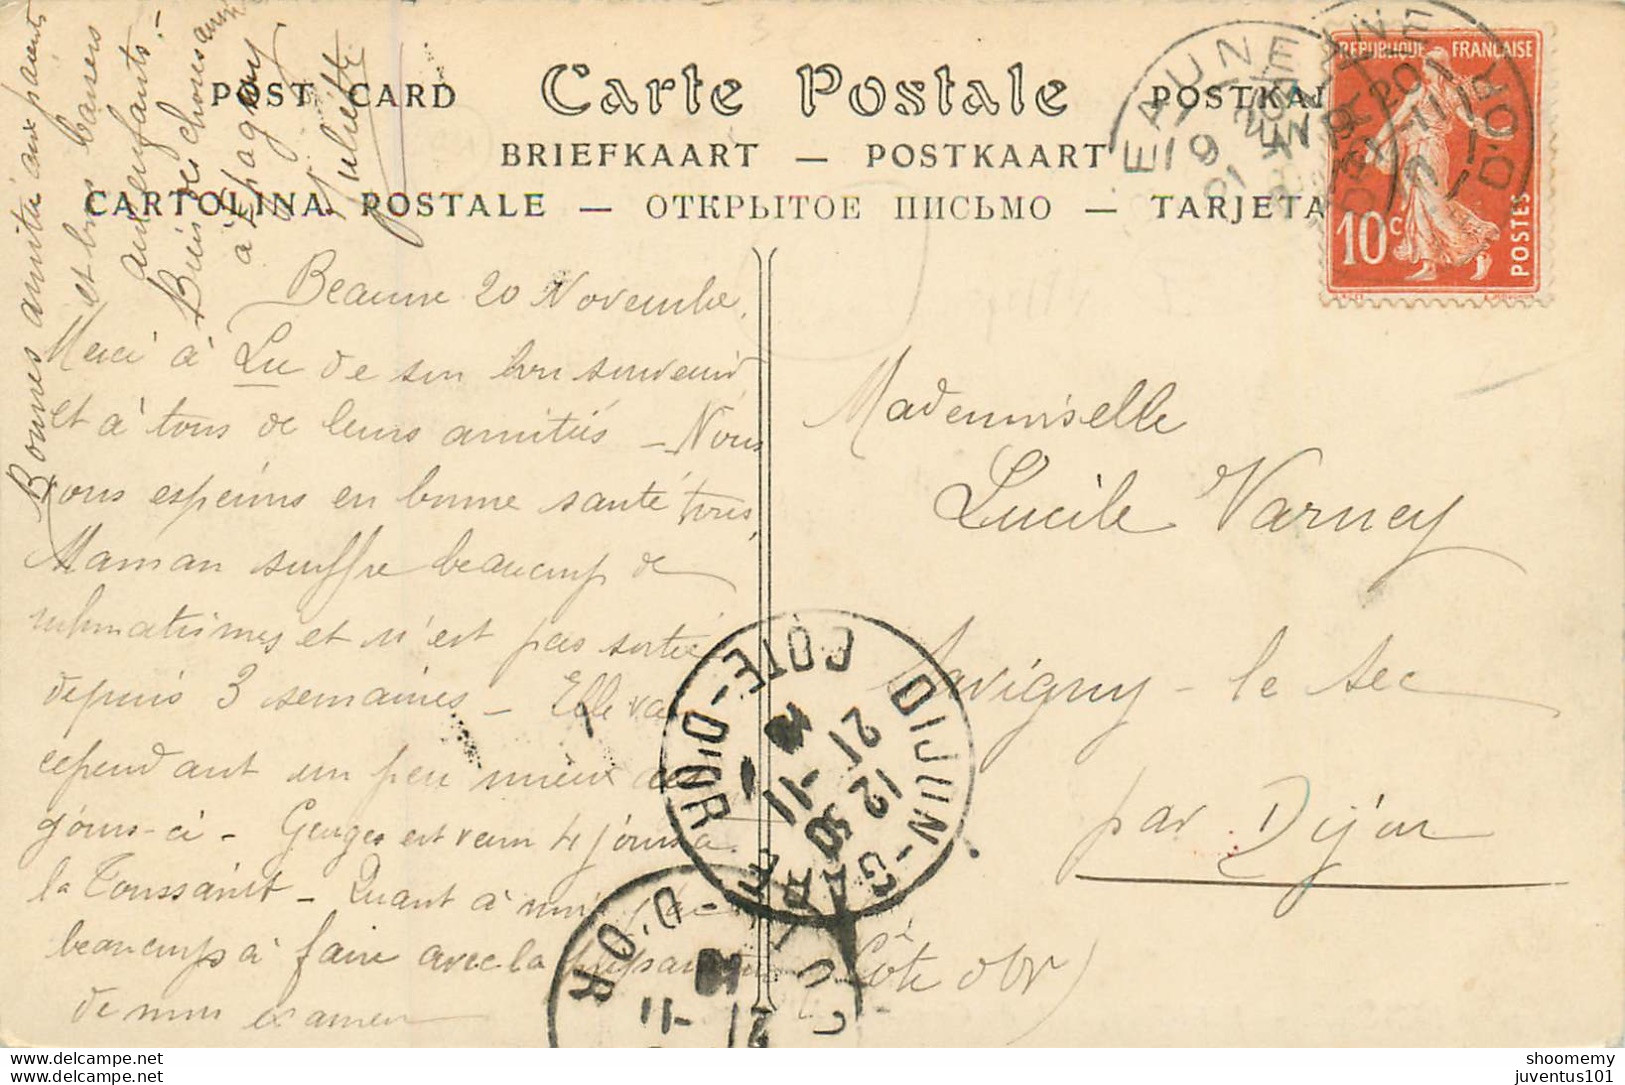 POST CARD Carte Postale POSTKA
BRIEFKAART — POSTKAART
CARTOLINA POSTALE — ОТКРЫТОЕ ПИСЬМО — TARJETA
REPUBLIQUE FRANCAISE
10c
POSTES
BEAUNE
D'OR
Beaune 20 Novembre
Merci à Lu de son bon souvenir
et à tous de leurs amitiés — Nous
vous espérons en bonne santé tous
Maman souffre beaucoup de
rhumatismes et n'est pas sortie
depuis 3 semaines — Elle va
cependant un peu mieux ces
jours-ci — Georges est venu 4 jours à
la Toussaint — Quant à moi j'ai
beaucoup à faire avec la préparation
de mon examen
Bonnes amitiés aux parents
et bons baisers
aux enfants.—
Bien des choses
à
Juliette
Mademoiselle
Lucile Varney
Savigny-le Sec
par Dijon
(Côte d'Or)
DIJON-GARE
COTE-D'OR
12 50
21 -11
D'OR
21 -11
main de juventus101
shoomemy
juventus101